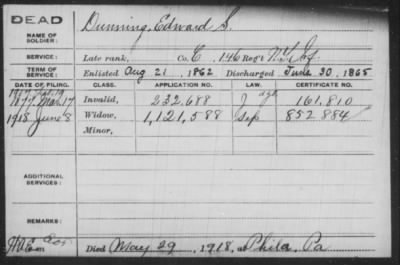 DEAD
NAME OF SOLDIER: Dunning, Edward S.
SERVICE: Late rank, Co. E, 146 Reg't N.Y. Inf
TERM OF SERVICE: Enlisted Aug 21, 1862 Discharged June 30, 1865
DATE OF FILING. CLASS. APPLICATION NO. LAW. CERTIFICATE NO.
1877 Mar. 17 Invalid, 232,688 161,810
1918 June 8 Widow, 1,121,588 Sep 852 884
Minor,
ADDITIONAL SERVICES:
REMARKS:
Died May 29, 1918, at Phila, Pa